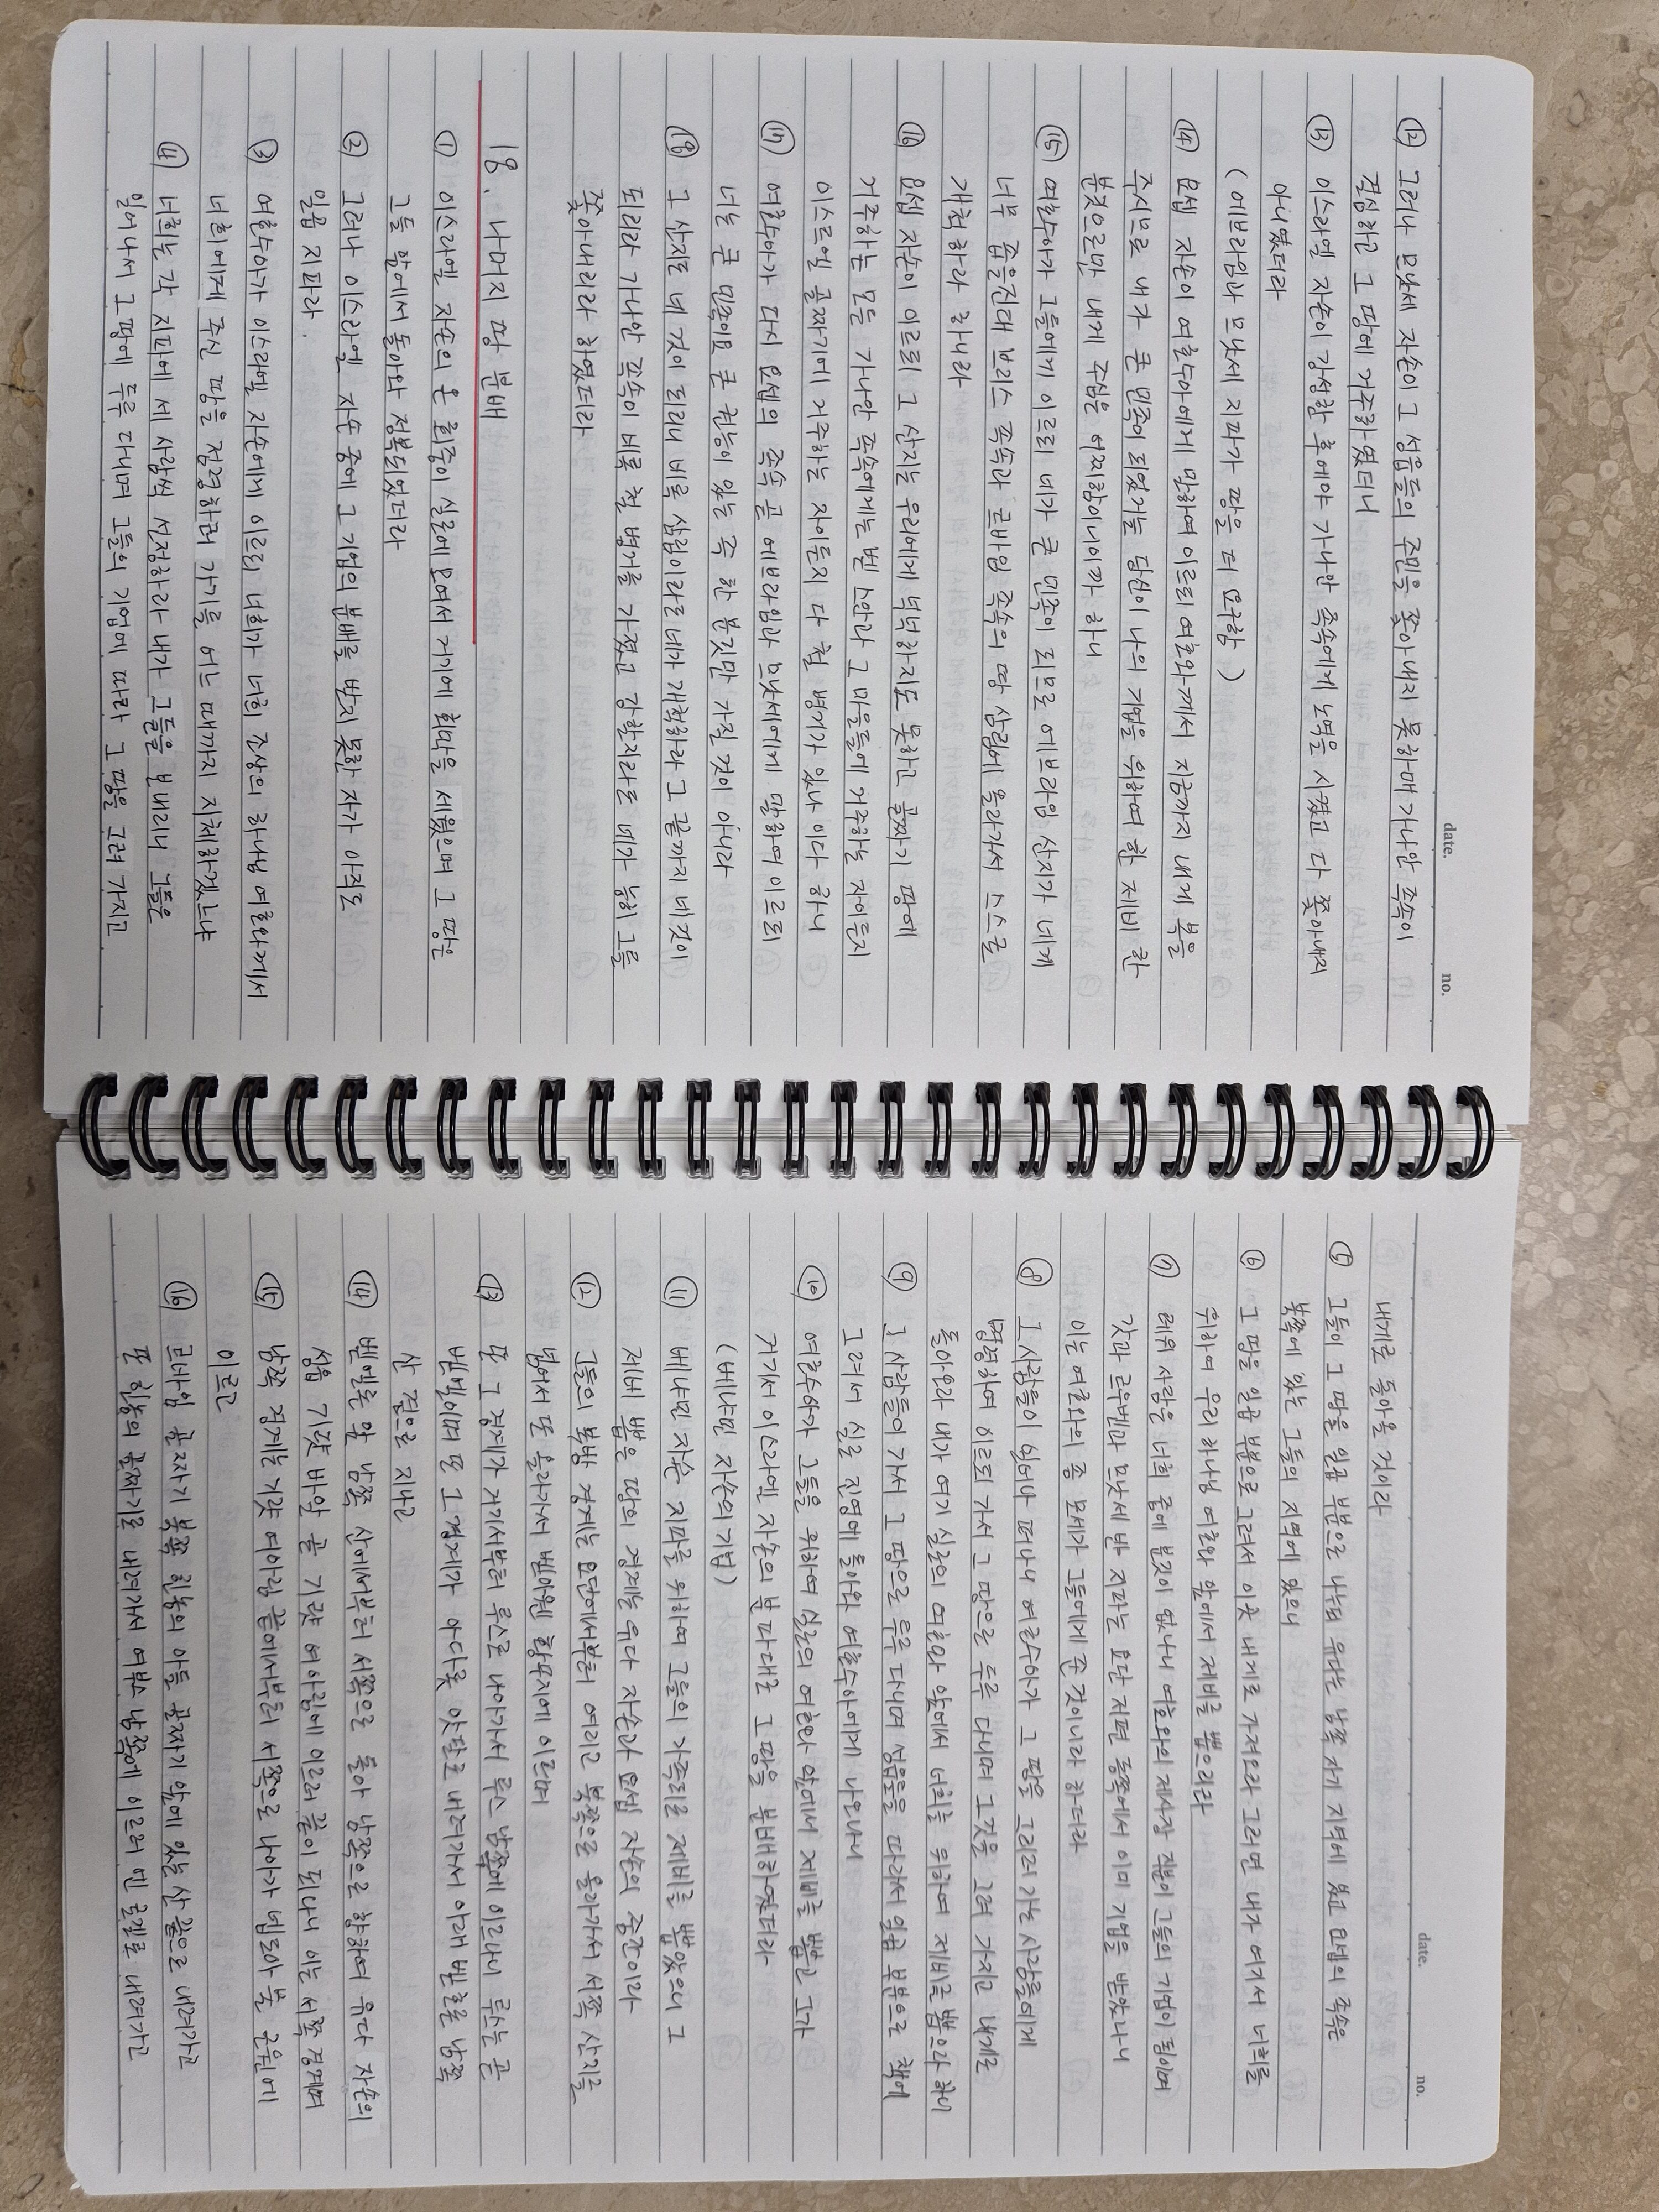 date. no.
⑫ 그러나 므낫세 자손이 그 성읍들의 주민을 쫓아내지 못하매 가나안 족속이
결심하고 그 땅에 거주하였더니
⑬ 이스라엘 자손이 강성한 후에야 가나안 족속에게 노역을 시켰고 다 쫓아내지
아니하였더라
(에브라임과 므낫세 지파가 땅을 더 요구함)
⑭ 요셉 자손이 여호수아에게 말하여 이르되 여호와께서 지금까지 내게 복을
주시므로 내가 큰 민족이 되었거늘 당신이 나의 기업을 위하여 한 제비 한
분깃으로만 내게 주심은 어찌함이니이까 하니
⑮ 여호수아가 그들에게 이르되 네가 큰 민족이 되므로 에브라임 산지가 네게
너무 좁을진대 브리스 족속과 르바임 족속의 땅 삼림에 올라가서 스스로
개척하라 하니라
⑯ 요셉 자손이 이르되 그 산지는 우리에게 넉넉하지도 못하고 골짜기 땅에
거주하는 모든 가나안 족속에게는 벧 스안과 그 마을들에 거주하는 자이든지
이스르엘 골짜기에 거주하는 자이든지 다 철 병거가 있나이다 하니
⑰ 여호수아가 다시 요셉의 족속 곧 에브라임과 므낫세에게 말하여 이르되
너는 큰 민족이요 큰 권능이 있는 즉 한 분깃만 가질 것이 아니라
⑱ 그 산지도 네 것이 되리니 비록 삼림이라도 네가 개척하라 그 끝까지 네것이
되리라 가나안 족속이 비록 철 병거를 가졌고 강할지라도 네가 능히 그를
쫓아내리라 하였더라
18. 나머지 땅 분배
① 이스라엘 자손의 온 회중이 실로에 모여서 거기에 회막을 세웠으며 그 땅은
그들 앞에서 돌아와 정복되었더라
② 그러나 이스라엘 자손 중에 그 기업의 분배를 받지 못한 자가 아직도
일곱 지파라.
③ 여호수아가 이스라엘 자손에게 이르되 너희가 너희 조상의 하나님 여호와께서
너희에게 주신 땅을 점령하러 가기를 어느 때까지 지체하겠느냐
④ 너희는 각 지파에 세 사람씩 선정하라 내가 그들을 보내리니 그들은
일어나서 그 땅에 두루 다니며 그들의 기업에 따라 그 땅을 그려 가지고
date. no.
내게로 돌아올 것이라
⑤ 그들이 그 땅을 일곱 부분으로 나누되 유다는 남쪽 자기 지역에 있고 요셉의 족속은
북쪽에 있는 그들의 지역에 있으니
⑥ 그 땅을 일곱 부분으로 그려서 이곳 내게로 가져오라 그러면 내가 여기서 너희를
위하여 우리 하나님 여호와 앞에서 제비를 뽑으리라
⑦ 레위 사람은 너희 중에 분깃이 없나니 여호와의 제사장 직분이 그들의 기업이 됨이며
갓과 르우벤과 므낫세 반 지파는 요단 저편 동쪽에서 이미 기업을 받았나니
이는 여호와의 종 모세가 그들에게 준 것이니라 하더라
⑧ 그 사람들이 일어나 떠나니 여호수아가 그 땅을 그리러 가는 사람들에게
명령하여 이르되 가서 그 땅으로 두루 다니며 그것을 그려 가지고 내게로
돌아오라 내가 여기 실로의 여호와 앞에서 너희를 위하여 제비를 뽑으리라 하니
⑨ 그 사람들이 가서 그 땅으로 두루 다니며 성읍들을 따라서 일곱 부분으로 책에
그려서 실로 진영에 돌아와 여호수아에게 나오니
⑩ 여호수아가 그들을 위하여 실로의 여호와 앞에서 제비를 뽑고 그가
거기서 이스라엘 자손의 분파대로 그 땅을 분배하였더라
(베냐민 자손의 기업)
⑪ 베냐민 자손 지파를 위하여 그들의 가족대로 제비를 뽑았으니 그
제비 뽑은 땅의 경계는 유다 자손과 요셉 자손의 중간이라
⑫ 그들의 북방 경계는 요단에서부터 여리고 북쪽으로 올라가서 서쪽 산지를
넘어서 또 올라가서 벧아웬 황무지에 이르며
⑬ 또 그 경계가 거기서부터 루스로 나아가서 루스 남쪽에 이르나니 루스는 곧
벧엘이며 또 그 경계가 아다롯 앗달로 내려가서 아래 벧호론 남쪽
산 곁으로 지나고
⑭ 벧호론 앞 남쪽 산에서부터 서쪽으로 돌아 남쪽으로 향하여 유다 자손의
성읍 기럇 바알 곧 기럇 여아림에 이르러 끝이 되나니 이는 서쪽 경계며
⑮ 남쪽 경계는 기럇 여아림 끝에서부터 서쪽으로 나아가 넵도아 물 근원에
이르고
⑯ 르바임 골짜기 북쪽 힌놈의 아들 골짜기 앞에 있는 산 끝으로 내려가고
또 힌놈의 골짜기로 내려가서 여부스 남쪽에 이르러 엔 로겔로 내려가고